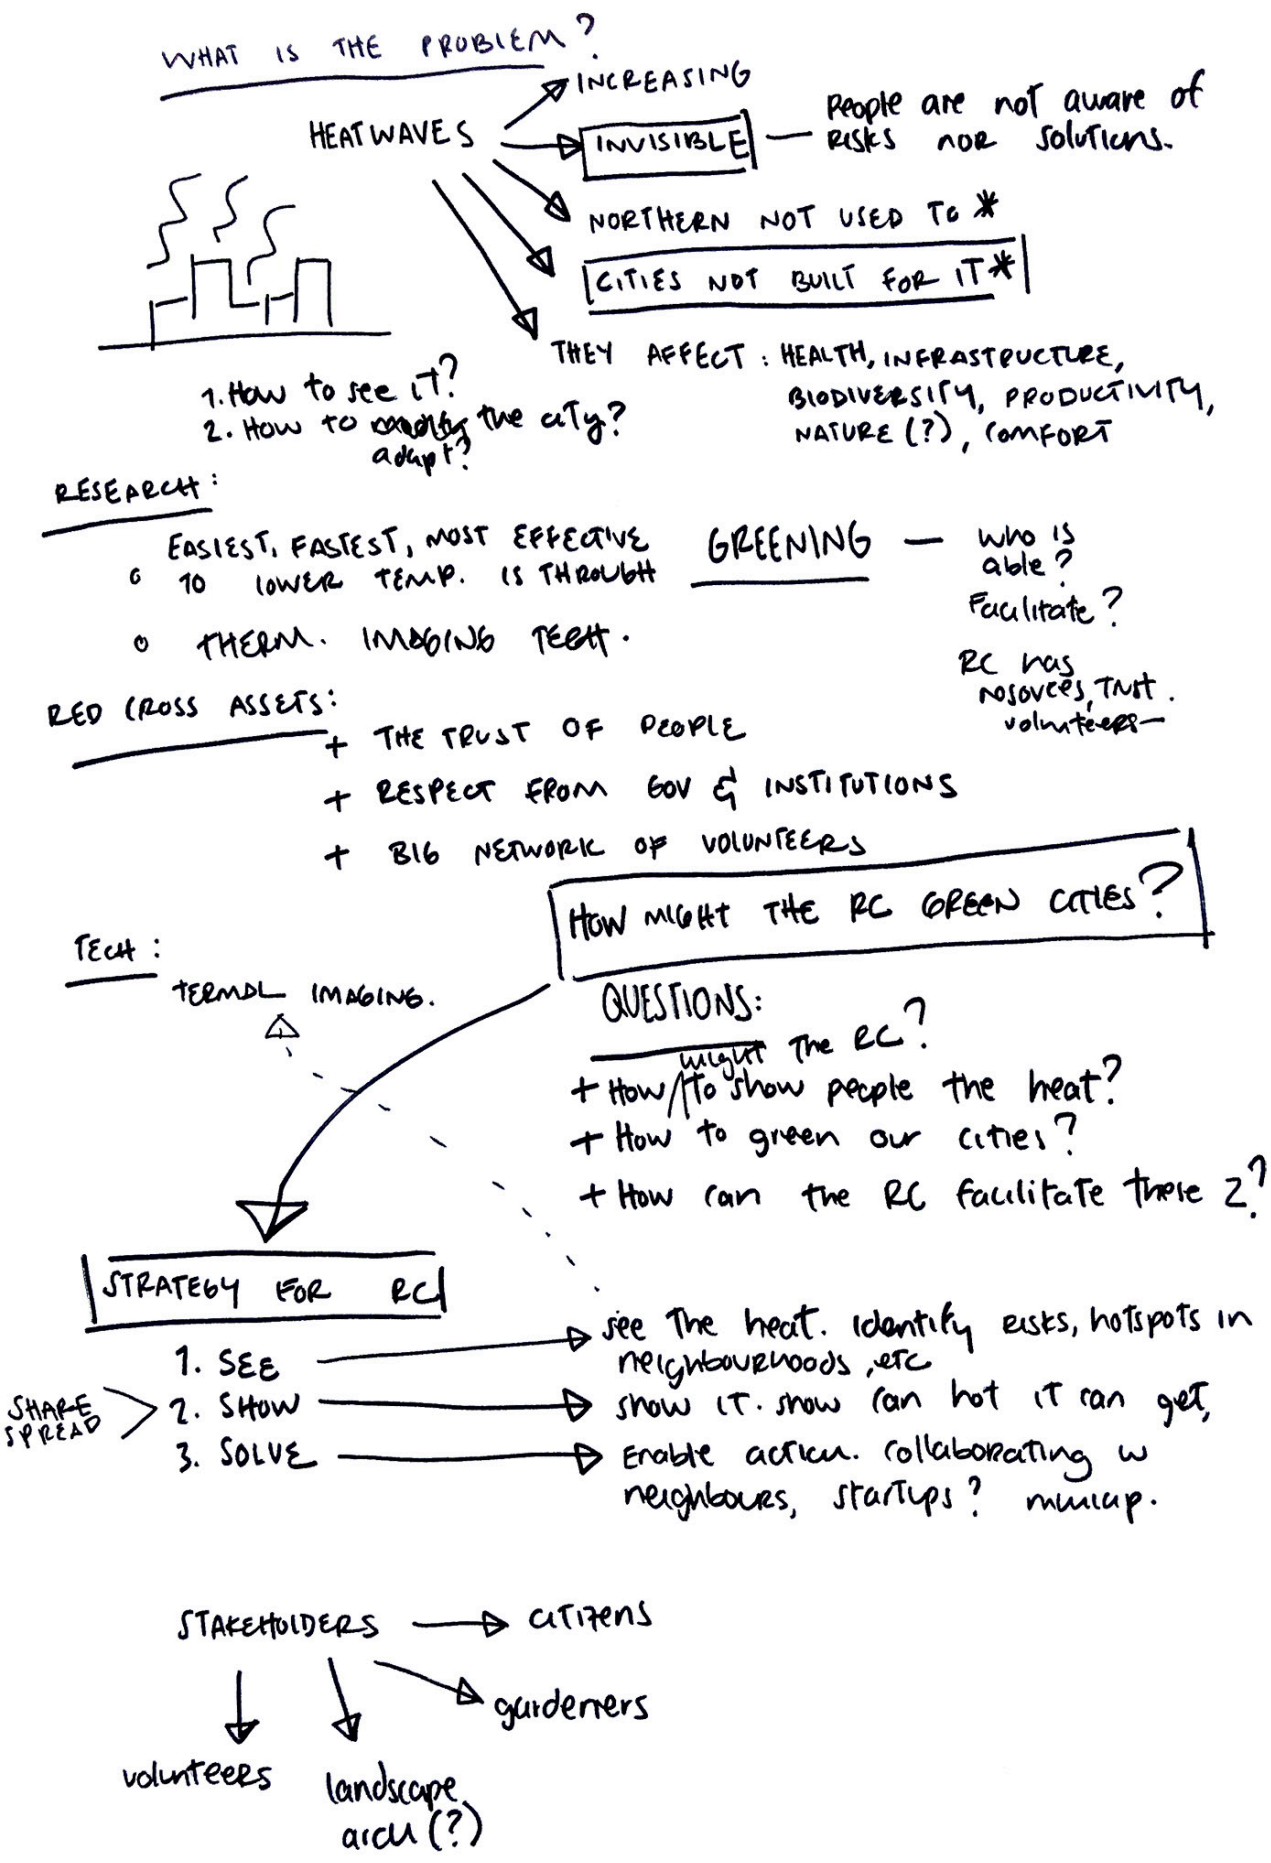 WHAT IS THE PROBLEM?
HEATWAVES
INCREASING
INVISIBLE — People are not aware of
RISKS NOR SOLUTIONS.
NORTHERN NOT USED TO *
CITIES NOT BUILT FOR IT*
THEY AFFECT: HEALTH, INFRASTRUCTURE,
BIODIVERSITY, PRODUCTIVITY,
NATURE (?), COMFORT
1. How to see it?
2. How to the city?
adapt?
RESEARCH:
EASIEST, FASTEST, MOST EFFECTIVE
TO LOWER TEMP. IS THROUGH
GREENING — who is
able?
Facilitate?
THERM. IMAGING TECH.
RC has
resources, trust.
volunteers—
RED CROSS ASSETS:
+ THE TRUST OF PEOPLE
+ RESPECT FROM GOV & INSTITUTIONS
+ BIG NETWORK OF VOLUNTEERS
HOW MIGHT THE RC GREEN CITIES?
TECH:
TERMAL IMAGING.
QUESTIONS:
might the RC?
+ How to show people the heat?
+ How to green our cities?
+ How can the RC facilitate these 2?
STRATEGY FOR RC
1. SEE
see the heat. Identify risks, hotspots in
neighbourhoods, etc
SHARE
SPREAD
2. SHOW
show it. show can hot it can get,
3. SOLVE
Enable action. collaborating w
neighbours, startups? municip.
STAKEHOLDERS
citizens
gardeners
volunteers
landscape
arch (?)